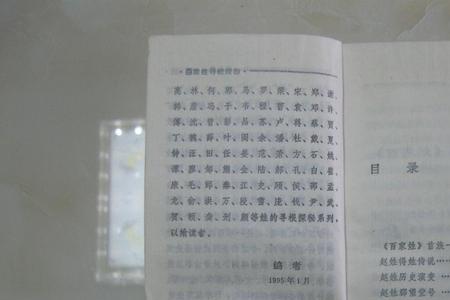 高、林、何、郭、马、罗、梁、宋、郑、谢、
韩、唐、冯、于、韦、程、曹、袁、邓、许、
傅、沈、曾、彭、吕、苏、卢、蒋、蔡、贾、
丁、魏、薛、叶、阎、余、潘、杜、戴、夏、
钟、汪、田、任、姜、范、方、石、姚、
谭、廖、邹、熊、金、陆、郝、孔、白、崔、
康、毛、邱、秦、江、史、顾、侯、邵、孟、
龙、万、段、雷、钱、尹、武、
贺、赖、龚、颜等姓的寻根探秘系列,
以飨读者。
编者
1995年1月
目 录
《百家姓》首族
赵姓得姓传说……
赵姓历史演变
赵姓郡望堂号